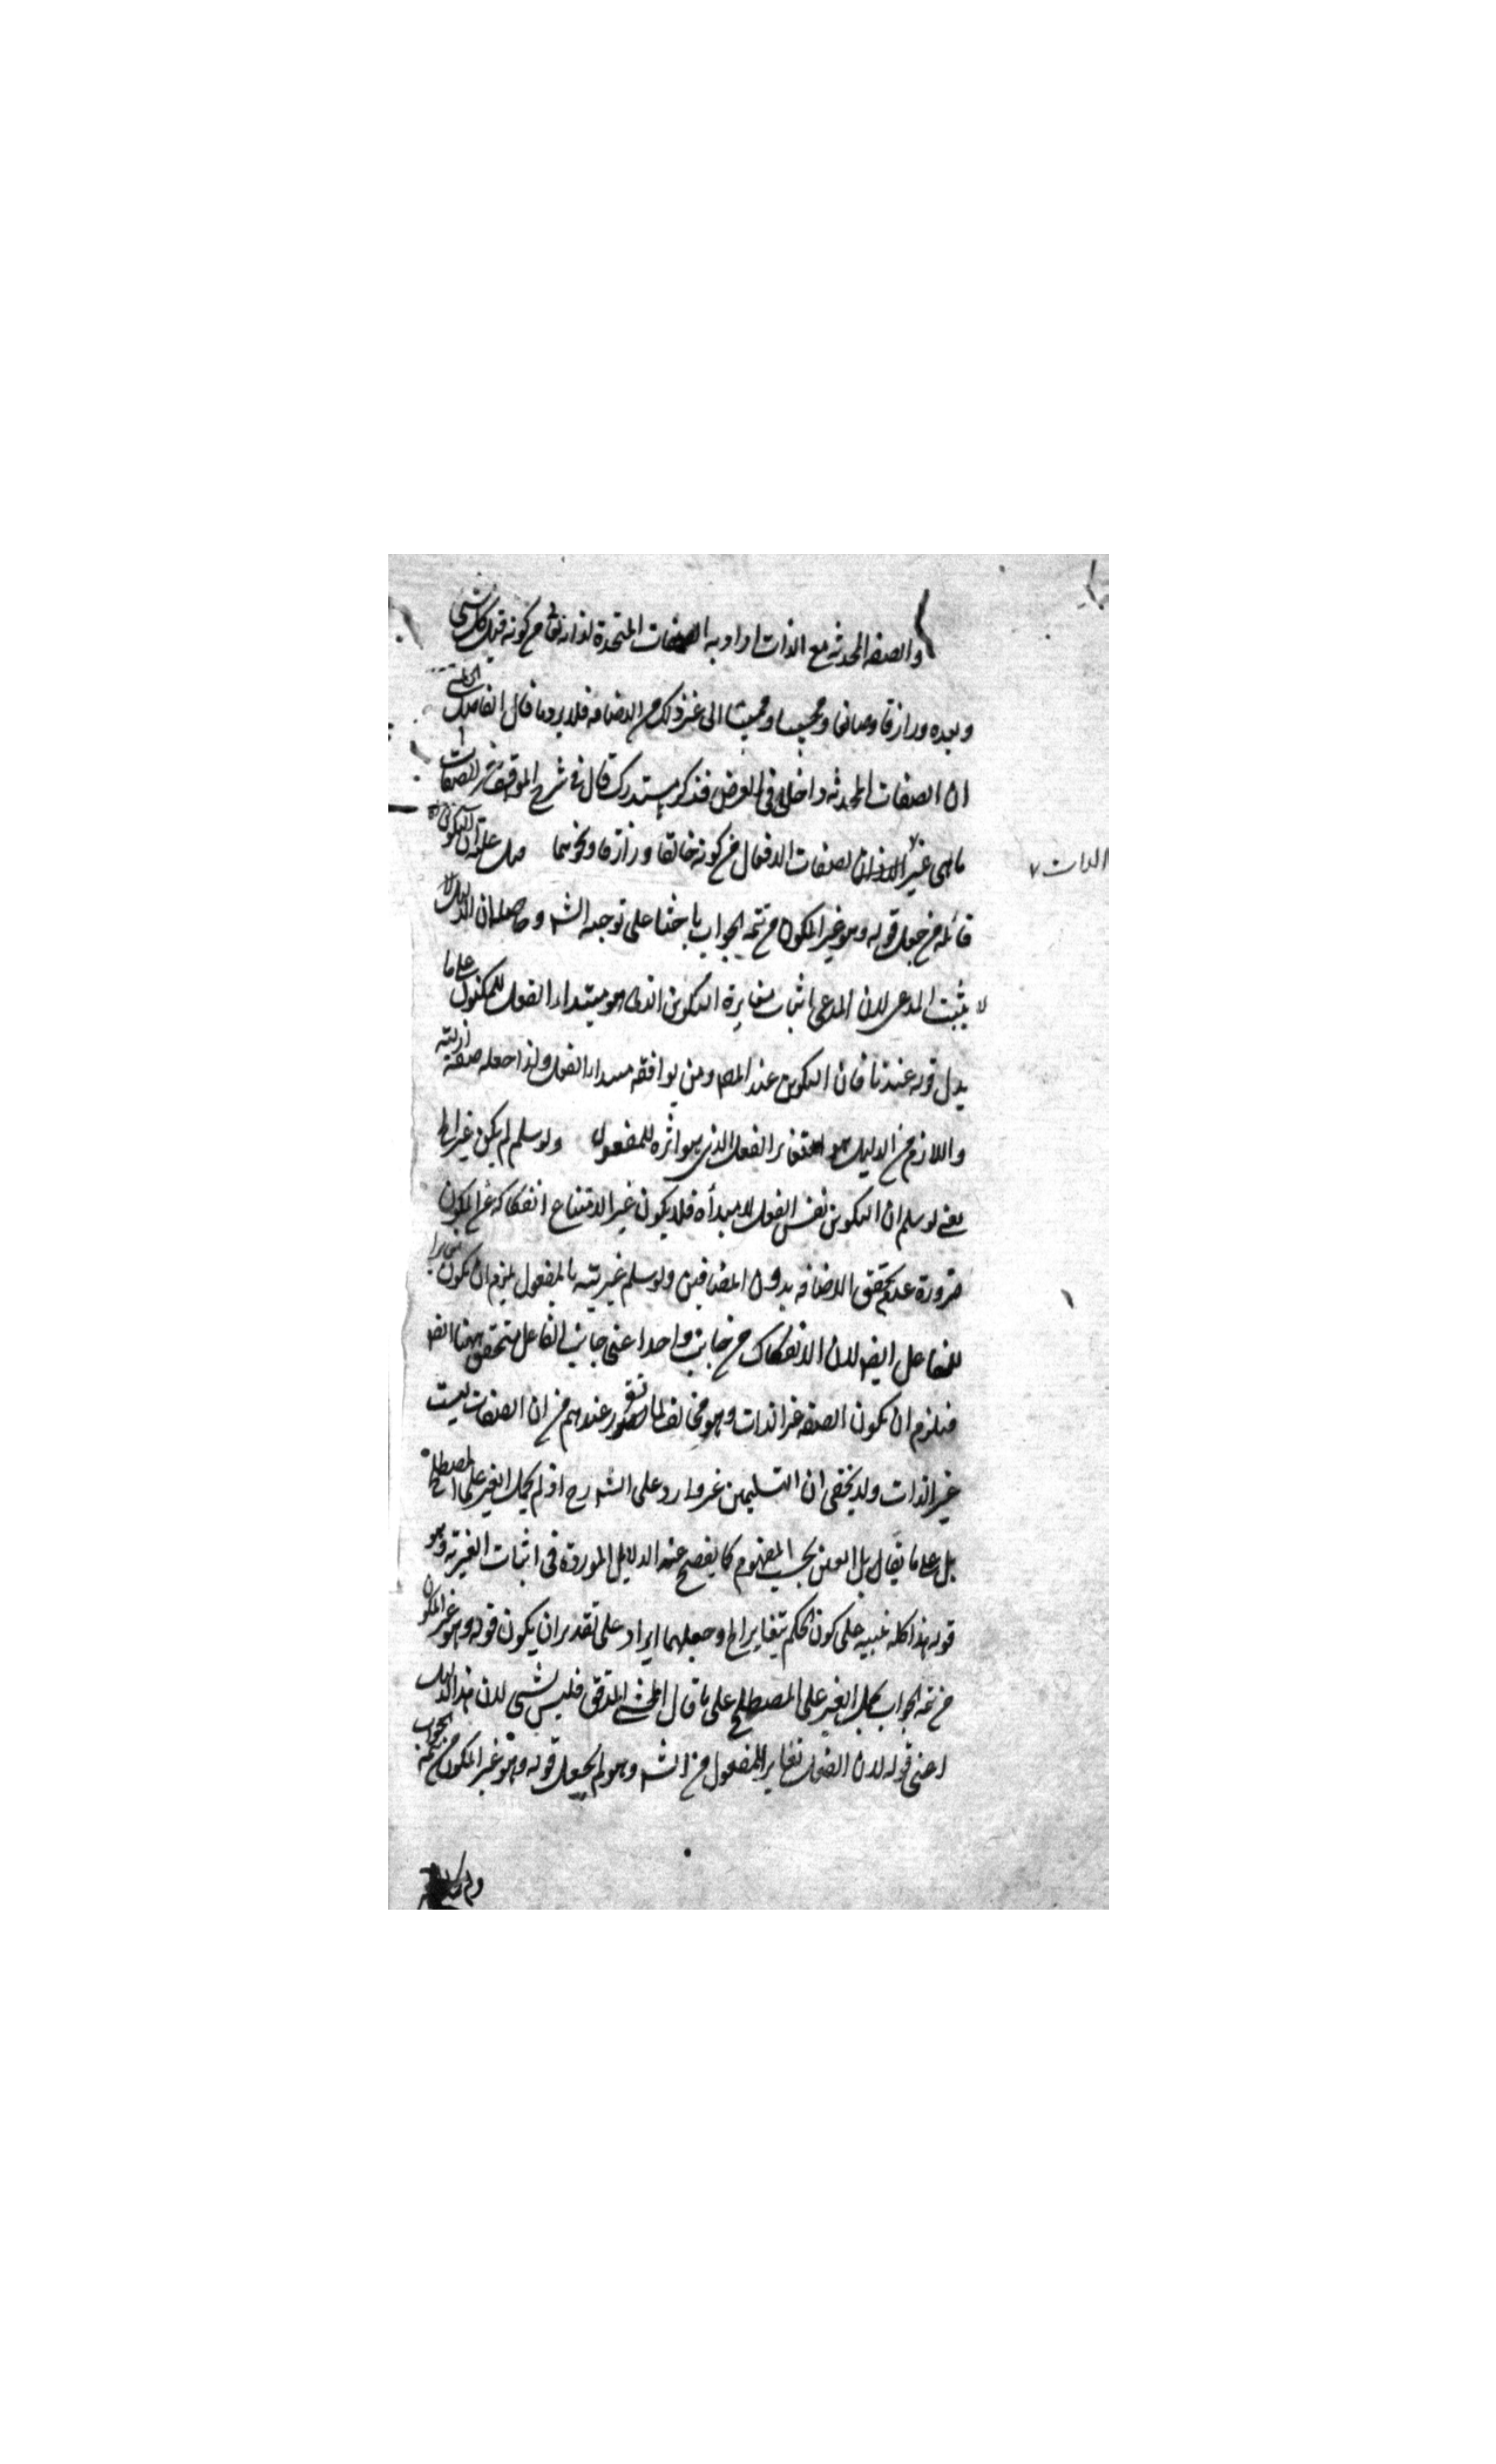 والصفة المحدثة مع الذات اراد به الصفات المتجددة لذاته تعالى من كونه قبل كل شئ
وبعده ورازقا وصانعا ومحييا ومميتا الى غير ذلك من الاضافة فلا يرد ما قال الفاضل الجلبى
ان الصفات المحدثة داخلة فى العرض فذكره مستدرك قال فى شرح المواقف من الصفات
ما هى غير الذات لصفات الافعال من كونه خالقا ورازقا ونحوهما على ان التكوين
الذات
قائله من جعل قوله وهو غير المكون من تتمة الجواب باحثا على توجيه الشه وحاصله ان الدليل لا
يثبت المدعى لان المدعى اثبات مغايرة التكوين الذى هو مبتداء الفعل للمكون على ما
يدل قوله عندنا فان التكوين عند المصه ومن يوافقه مبداء الفعل ولذا جعله صفة ازلية
واللازم من الدليل هو تغاير الفعل الذى هو اثره للمفعول ولو سلم لم يكن غيرا الخ
يعنى لو سلم ان التكوين نفس الفعل لا مبدأه فلا يكون غيرا لامتناع انفكاكه عن المكون
ضرورة عدم تحقق الاضافة بدون المضافين ولو سلم غيريته بالمفعول يلزم ان يكون مغايرا
للفاعل ايضه لان الانفكاك من جانب واحد اعنى جانب الفاعل متحقق ههنا ايضه
فيلزم ان يكون الصفة غير الذات وهو مخالف لما تقرر عندهم من ان الصفات ليست
غير الذات ولا يخفى ان التسليمين غير وارد على الشارح اذ لم يحمل الغير على المصطلح
بل على ما يقابل العين بحسب المفهوم كما يفصح عنه الدلائل الموردة فى اثبات الغيرية وهو
قوله هذا كله تنبيه على كون الحكم بتغاير الخ وجعلهما ايراد على تقدير ان يكون قوله وهو غير المكون
من تتمة الجواب بحمل الغير على المصطلح على ما قال المحشى المدقق فليس بشئ لان هذا الدليل
اعنى قوله لان الفعل تغاير المفعول من الشه وهو لم يجعل قوله وهو غير المكون من تتمة الجواب